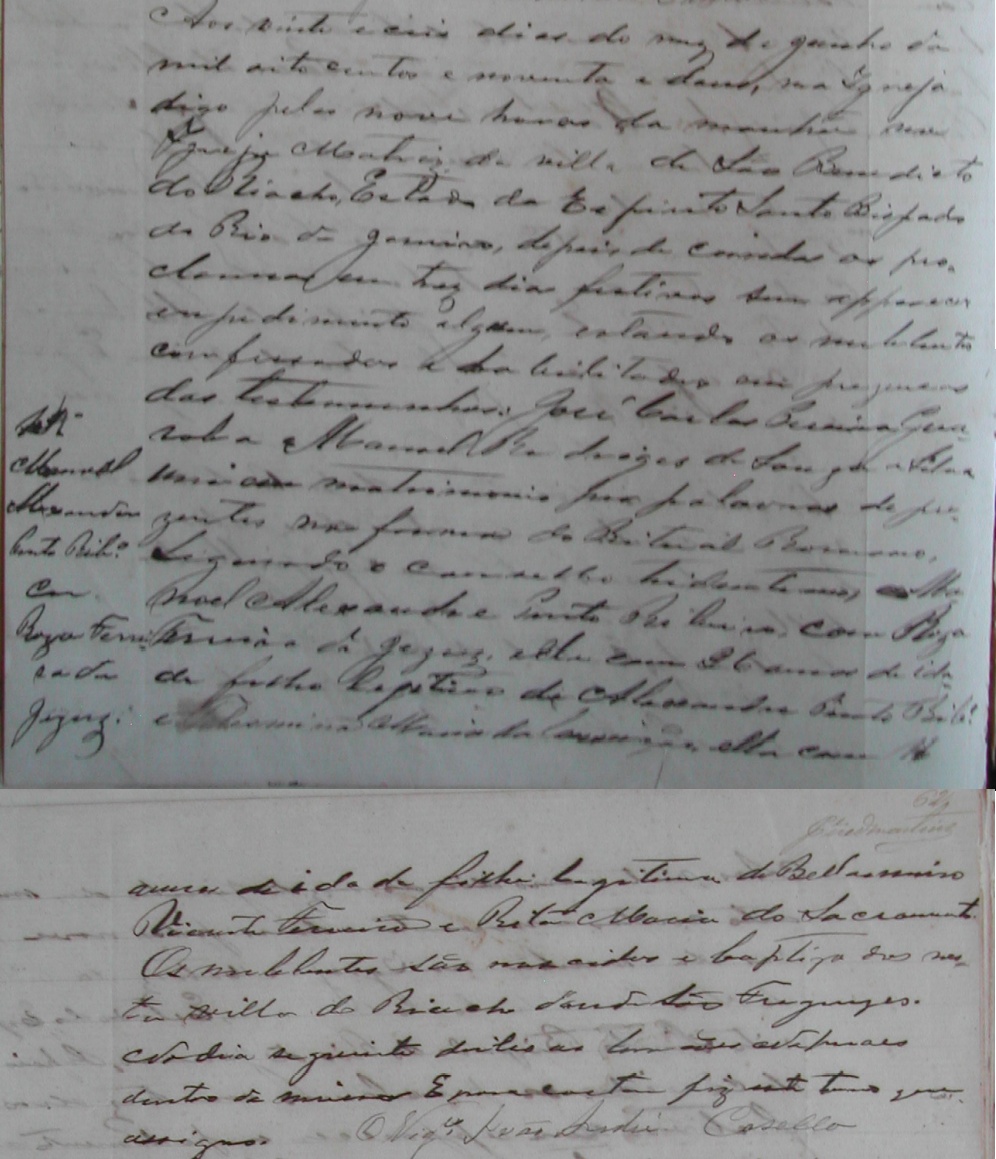 Aos vinte e ceis dias do mez de junho de
mil oito centos e noventa e dous, na Igreja
digo pelas nove horas da manhã na
Igreja Matriz da villa de São Benedicto
do Riacho, Estado do Espirito Santo Bispado
do Rio de Janeiro, depois de corridos os pro-
clamas em trez dias festivos sem apparecer
impedimento algum, estando os nubentes
confessados e habilitados em prezenca
das testemunhas: José Carlos Pereira
e Manoel Rodrigues de Souza e Silva
uni em matrimonio por palavras de pre-
zentes na forma do Ritual Romano,
Segundo o concilho tridentino, a Ma-
noel Alexandre Pinto Ribeiro, com Roza
Ferreira de Jezuz, elle com 26 annos de ida-
de filho legitimo de Alexandre Pinto Ribº
e Maria da Conceição, ella com
Nº
Manoel
Alexandre
Pinto Ribº
com
Roza Ferrei-
ra da
Jezuz.
62
annos de idade filha legitima de Bellarmino
Vicente Ferreira e Rita Maria do Sacramento.
Os nubentes são nascidos e baptizados nes-
ta villa do Riacho donde são Freguezes.
No dia seguinte deitei as bençãos nupciaes
dentro da missa E para constar fiz este termo que
assigno. O Vigº João André Casella